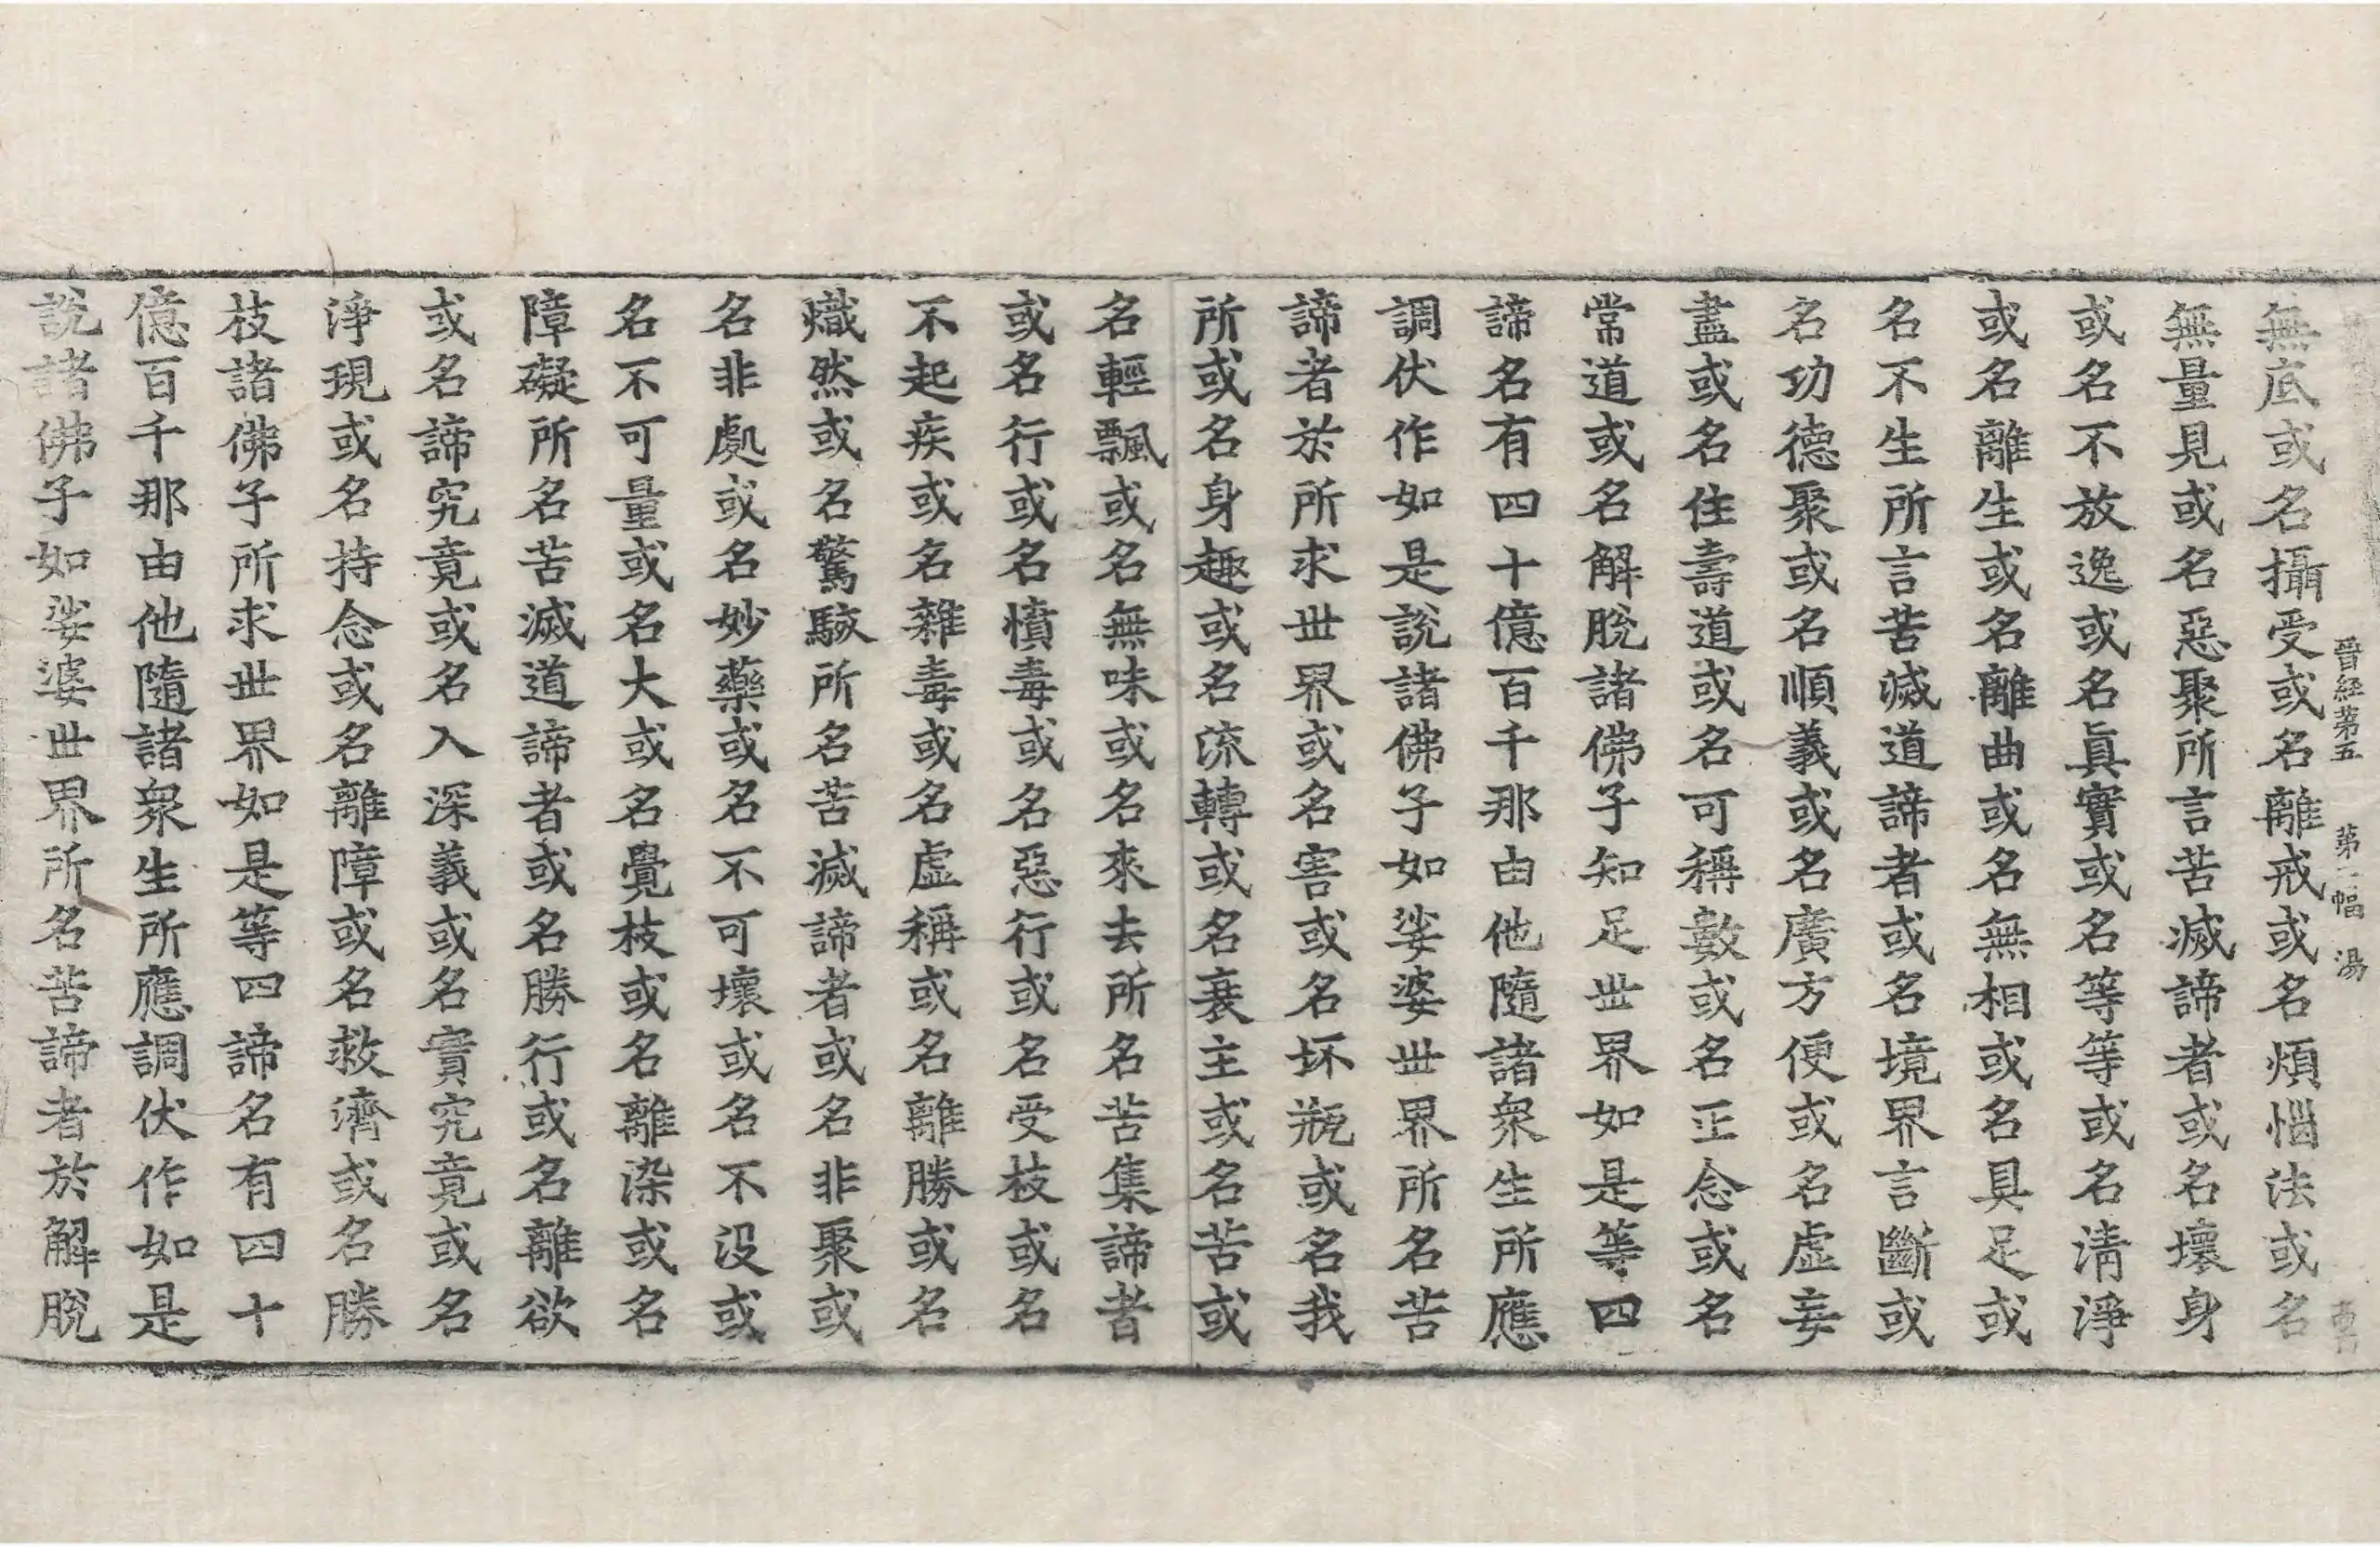 晉經第五 第二幅 湯
無底或名攝受或名離戒或名煩惱法或名
無量見或名惡聚所言苦滅諦者或名壞身
或名不放逸或名眞實或名等等或名淸淨
或名離生或名離曲或名無相或名具足或
名不生所言苦滅道諦者或名境界言斷或
名功德聚或名順義或名廣方便或名虛妄
盡或名住壽道或名可稱數或名正念或名
常道或名解脫諸佛子知足世界如是等四
諦名有四十億百千那由他隨諸衆生所應
調伏作如是說諸佛子如娑婆世界所名苦
諦者於所求世界或名害或名坏甁或名我
所或名身趣或名流轉或名衰主或名苦或
名輕飄或名無味或名來去所名苦集諦者
或名行或名憤毒或名惡行或名受枝或名
不起疾或名雜毒或名虛稱或名離勝或名
熾然或名驚駭所名苦滅諦者或名非聚或
名非處或名妙藥或名不可壞或名不沒或
名不可量或名大或名覺枝或名離染或名
障礙所名苦滅道諦者或名勝行或名離欲
或名諦究竟或名入深義或名實究竟或名
淨現或名持念或名離障或名救濟或名勝
枝諸佛子所求世界如是等四諦名有四十
億百千那由他隨諸衆生所應調伏作如是
說諸佛子如娑婆世界所名苦諦者於解脫